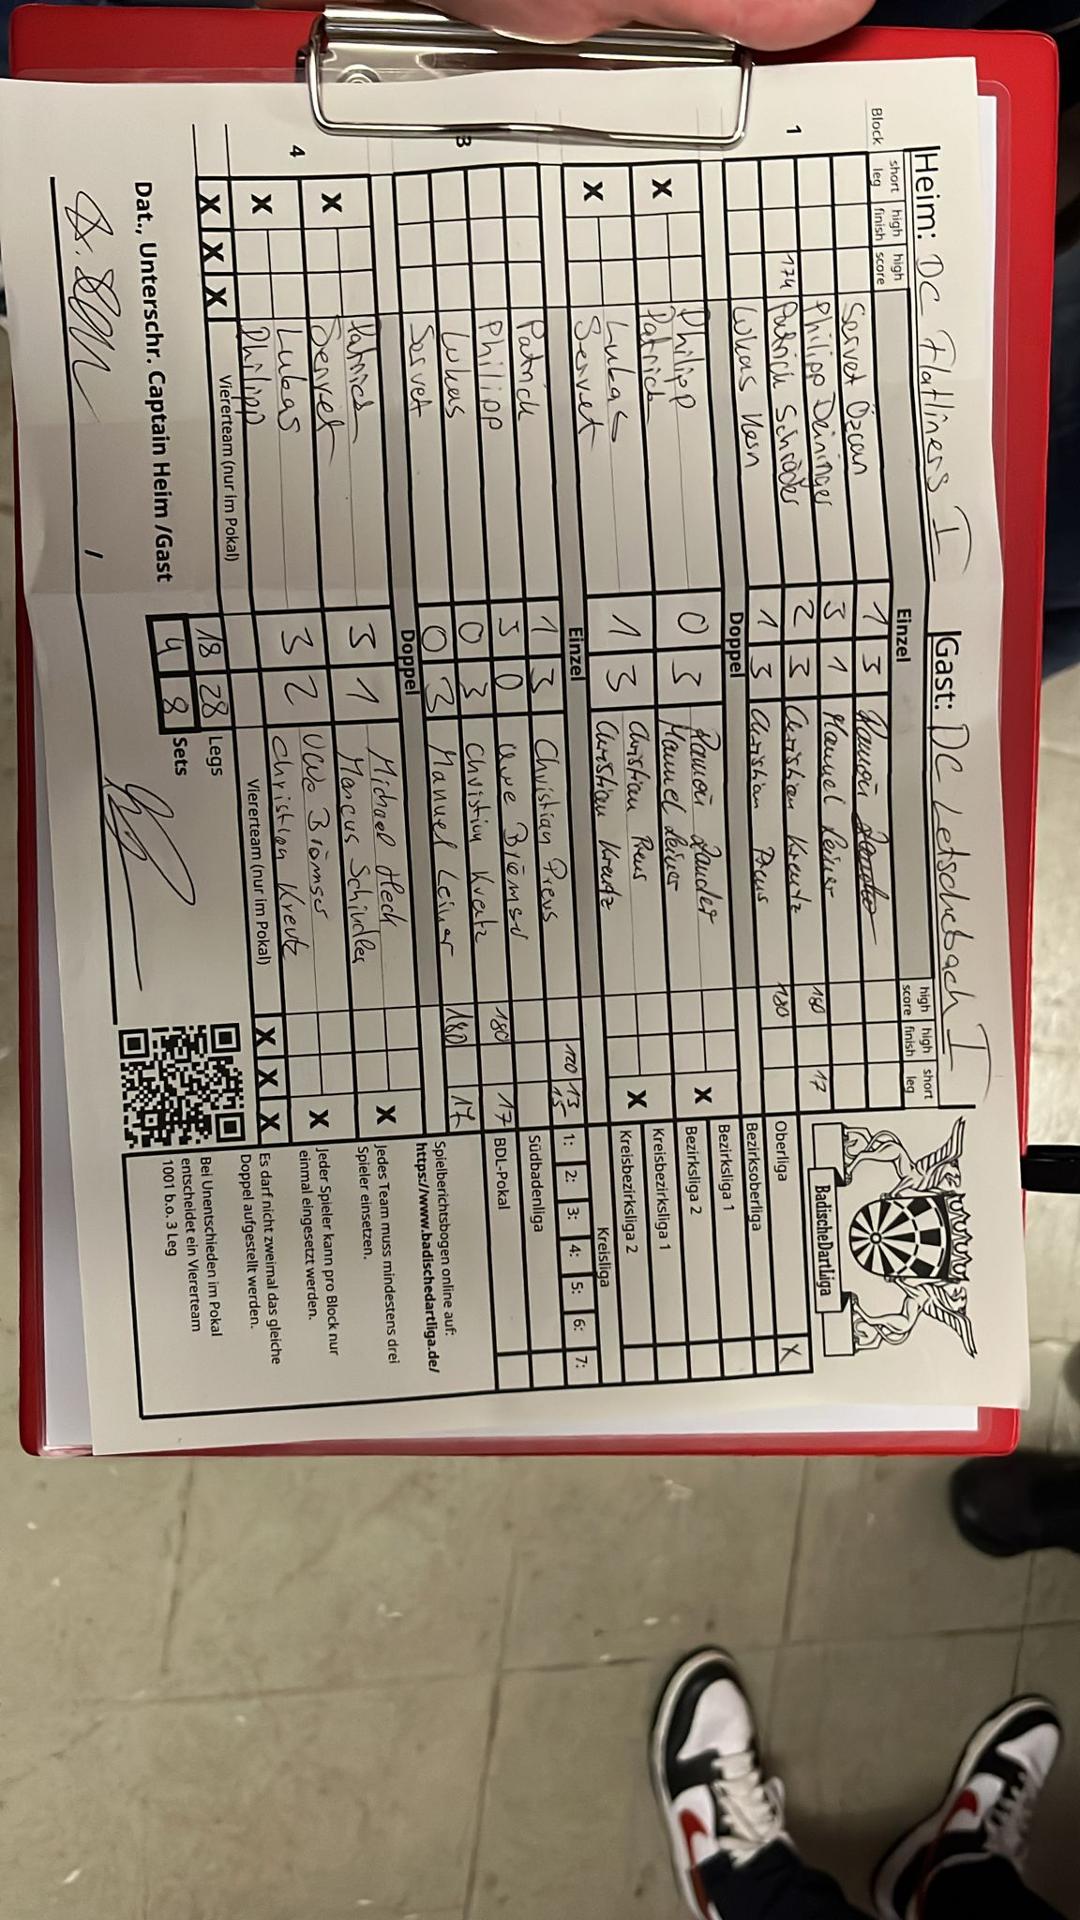 Heim: DC Flatliners I Gast: DC Letschebach I
Block short leg high finish high score Einzel high score high finish short leg
1
Servet Özcan 1 3 Ramon
Philipp Deininger 3 1 Manuel Leiner 160 17
174 Patrick Schröder 2 3 Christian Kreutz 180
Lukas 1 3 Christian Preus
Doppel
Philipp 0 3 Ramon Zauder
X Patrick Manuel Leiner X
Lukas 1 3 Christian Preus
X Servet Christian Kreutz X
Einzel
3
Patrick 1 3 Christian Preus 120 13 15
Philipp 3 0 Uwe Brömser
Lukas 0 3 Christian Kreutz 180 17
Servet 0 3 Manuel Leiner 180 17
Doppel
4
Patrick 3 1 Michael Heck
X Servet Marcus Schindler X
Lukas 3 2 Uwe Brömser
X Philipp Christian Kreutz X
X X X Viererteam (nur im Pokal) 18 28 Legs Viererteam (nur im Pokal) X X X
4 8 Sets
Dat., Unterschr. Captain Heim /Gast
BadischeDartLiga
Oberliga X
Bezirksoberliga
Bezirksliga 1
Bezirksliga 2
Kreisbezirksliga 1
Kreisbezirksliga 2
Kreisliga
1: 2: 3: 4: 5: 6: 7:
Südbadenliga
BDL-Pokal
Spielberichtsbogen online auf:
https://www.badischedartliga.de/
Jedes Team muss mindestens drei
Spieler einsetzen.
Jeder Spieler kann pro Block nur
einmal eingesetzt werden.
Es darf nicht zweimal das gleiche
Doppel aufgestellt werden.
Bei Unentschieden im Pokal
entscheidet ein Viererteam
1001 b.o. 3 Leg